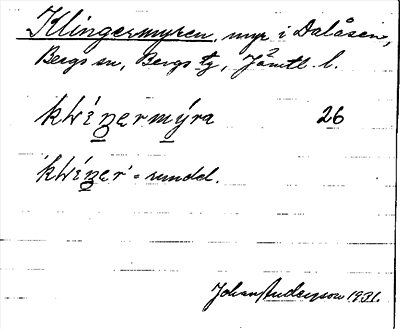 Klingermyren, myr i Dalåsen,
Bergs sn, Bergs tg, Jämtl. l.
klíŋermýra 26
klíŋer = rundel.
Johan Anderson 1931.